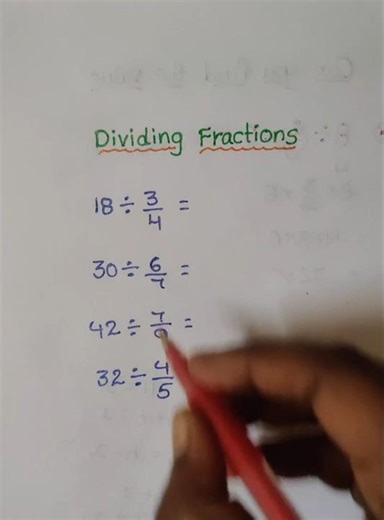 Dividing Fractions :
18 ÷ 3/4 =
30 ÷ 6/7 =
42 ÷ 7/ =
32 ÷ 4/5